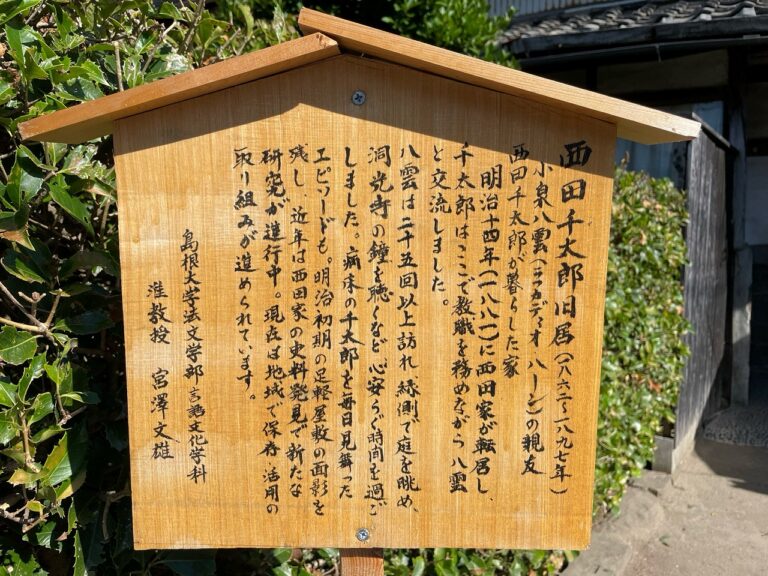 西田千太郎旧居(一八六二〜一八九七年)
小泉八雲(ラフカディオ ハーン)の親友
西田千太郎が暮らした家
明治十四年(一八八一)に西田家が転居し、
千太郎はここで教職を務めながら八雲
と交流しました。
八雲は二十五回以上訪れ、縁側で庭を眺め、
洞光寺の鐘を聴くなど心安らぐ時間を過ご
しました。病床の千太郎を毎日見舞った
エピソードも。明治初期の足軽屋敷の面影を
残し、近年は西田家の史料発見で新たな
研究が進行中。現在は地域で保存・活用の
取り組みが進められています。
島根大学法文学部言語文化学科
准教授 宮澤文雄